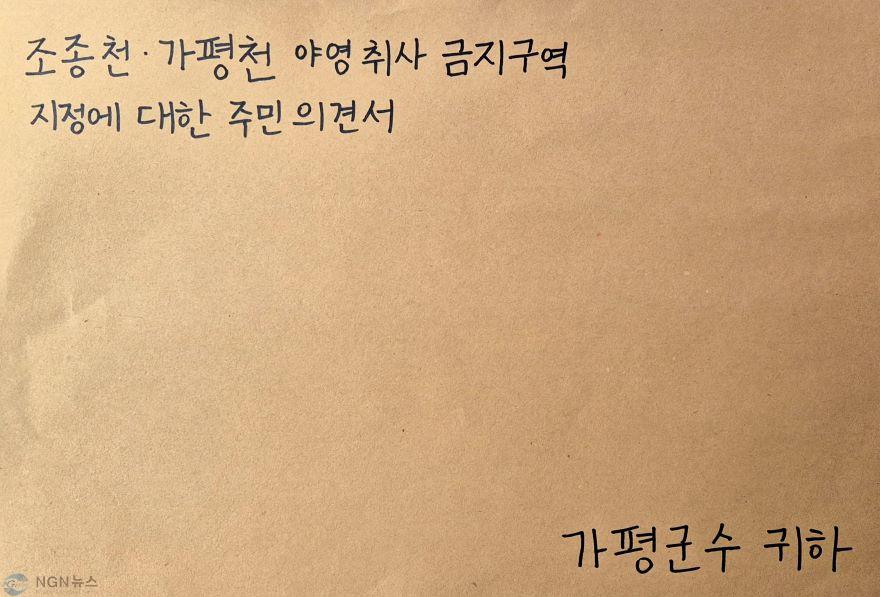 조종천·가평천 야영취사 금지구역
지정에 대한 주민의견서
가평군수 귀하
NGN뉴스